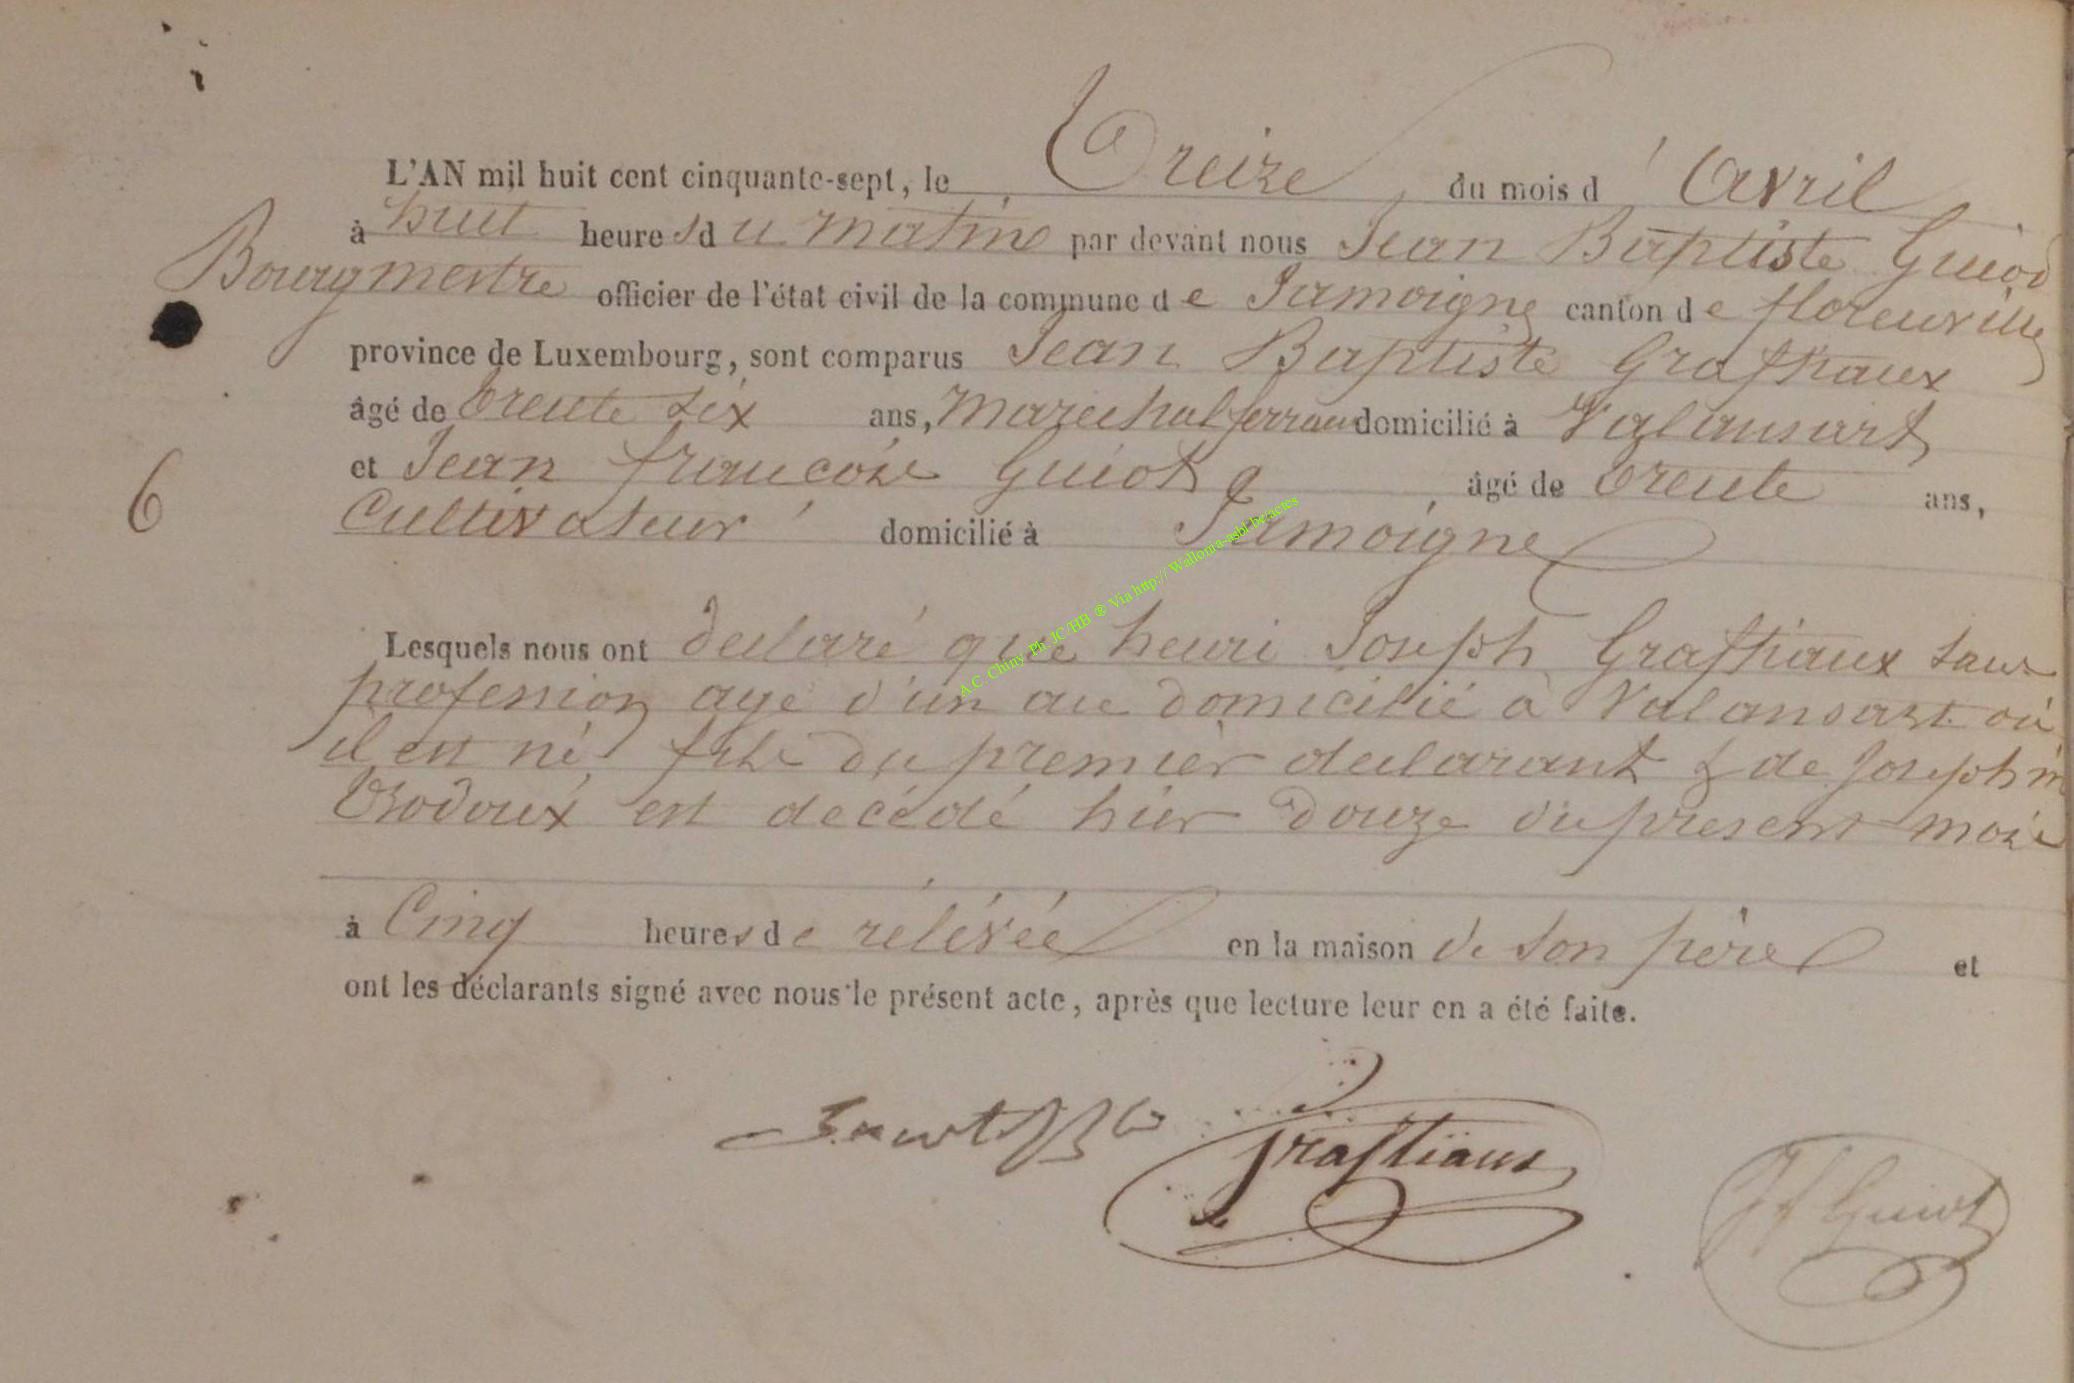 L'AN mil huit cent cinquante-sept, le Treize du mois d' Avril
à huit heures du matin par devant nous Jean Baptiste Guiot
Bourgmestre officier de l'état civil de la commune de Jamoigne canton de florenville
province de Luxembourg, sont comparus Jean Baptiste Graftiaux
âgé de trente six ans, marechal ferran domicilié à Valansart
et Jean françois Guiot âgé de trente ans,
6
Cultivateur domicilié à Jamoigne
Lesquels nous ont declaré que henri Joseph Graftiaux sans
profession agé d'un an domicilié à Valansart où
il est né, fils du premier declarant & de Joseph
est decédé hier douze du present mois
à Cinq heures de rélévée en la maison de son père et
ont les déclarants signé avec nous le présent acte, après que lecture leur en a été faite.
Graftiaux
Jf Guiot
A.C. Chiny Ph JC/HB ® Via http:// Wallonia-asbl.be/actes